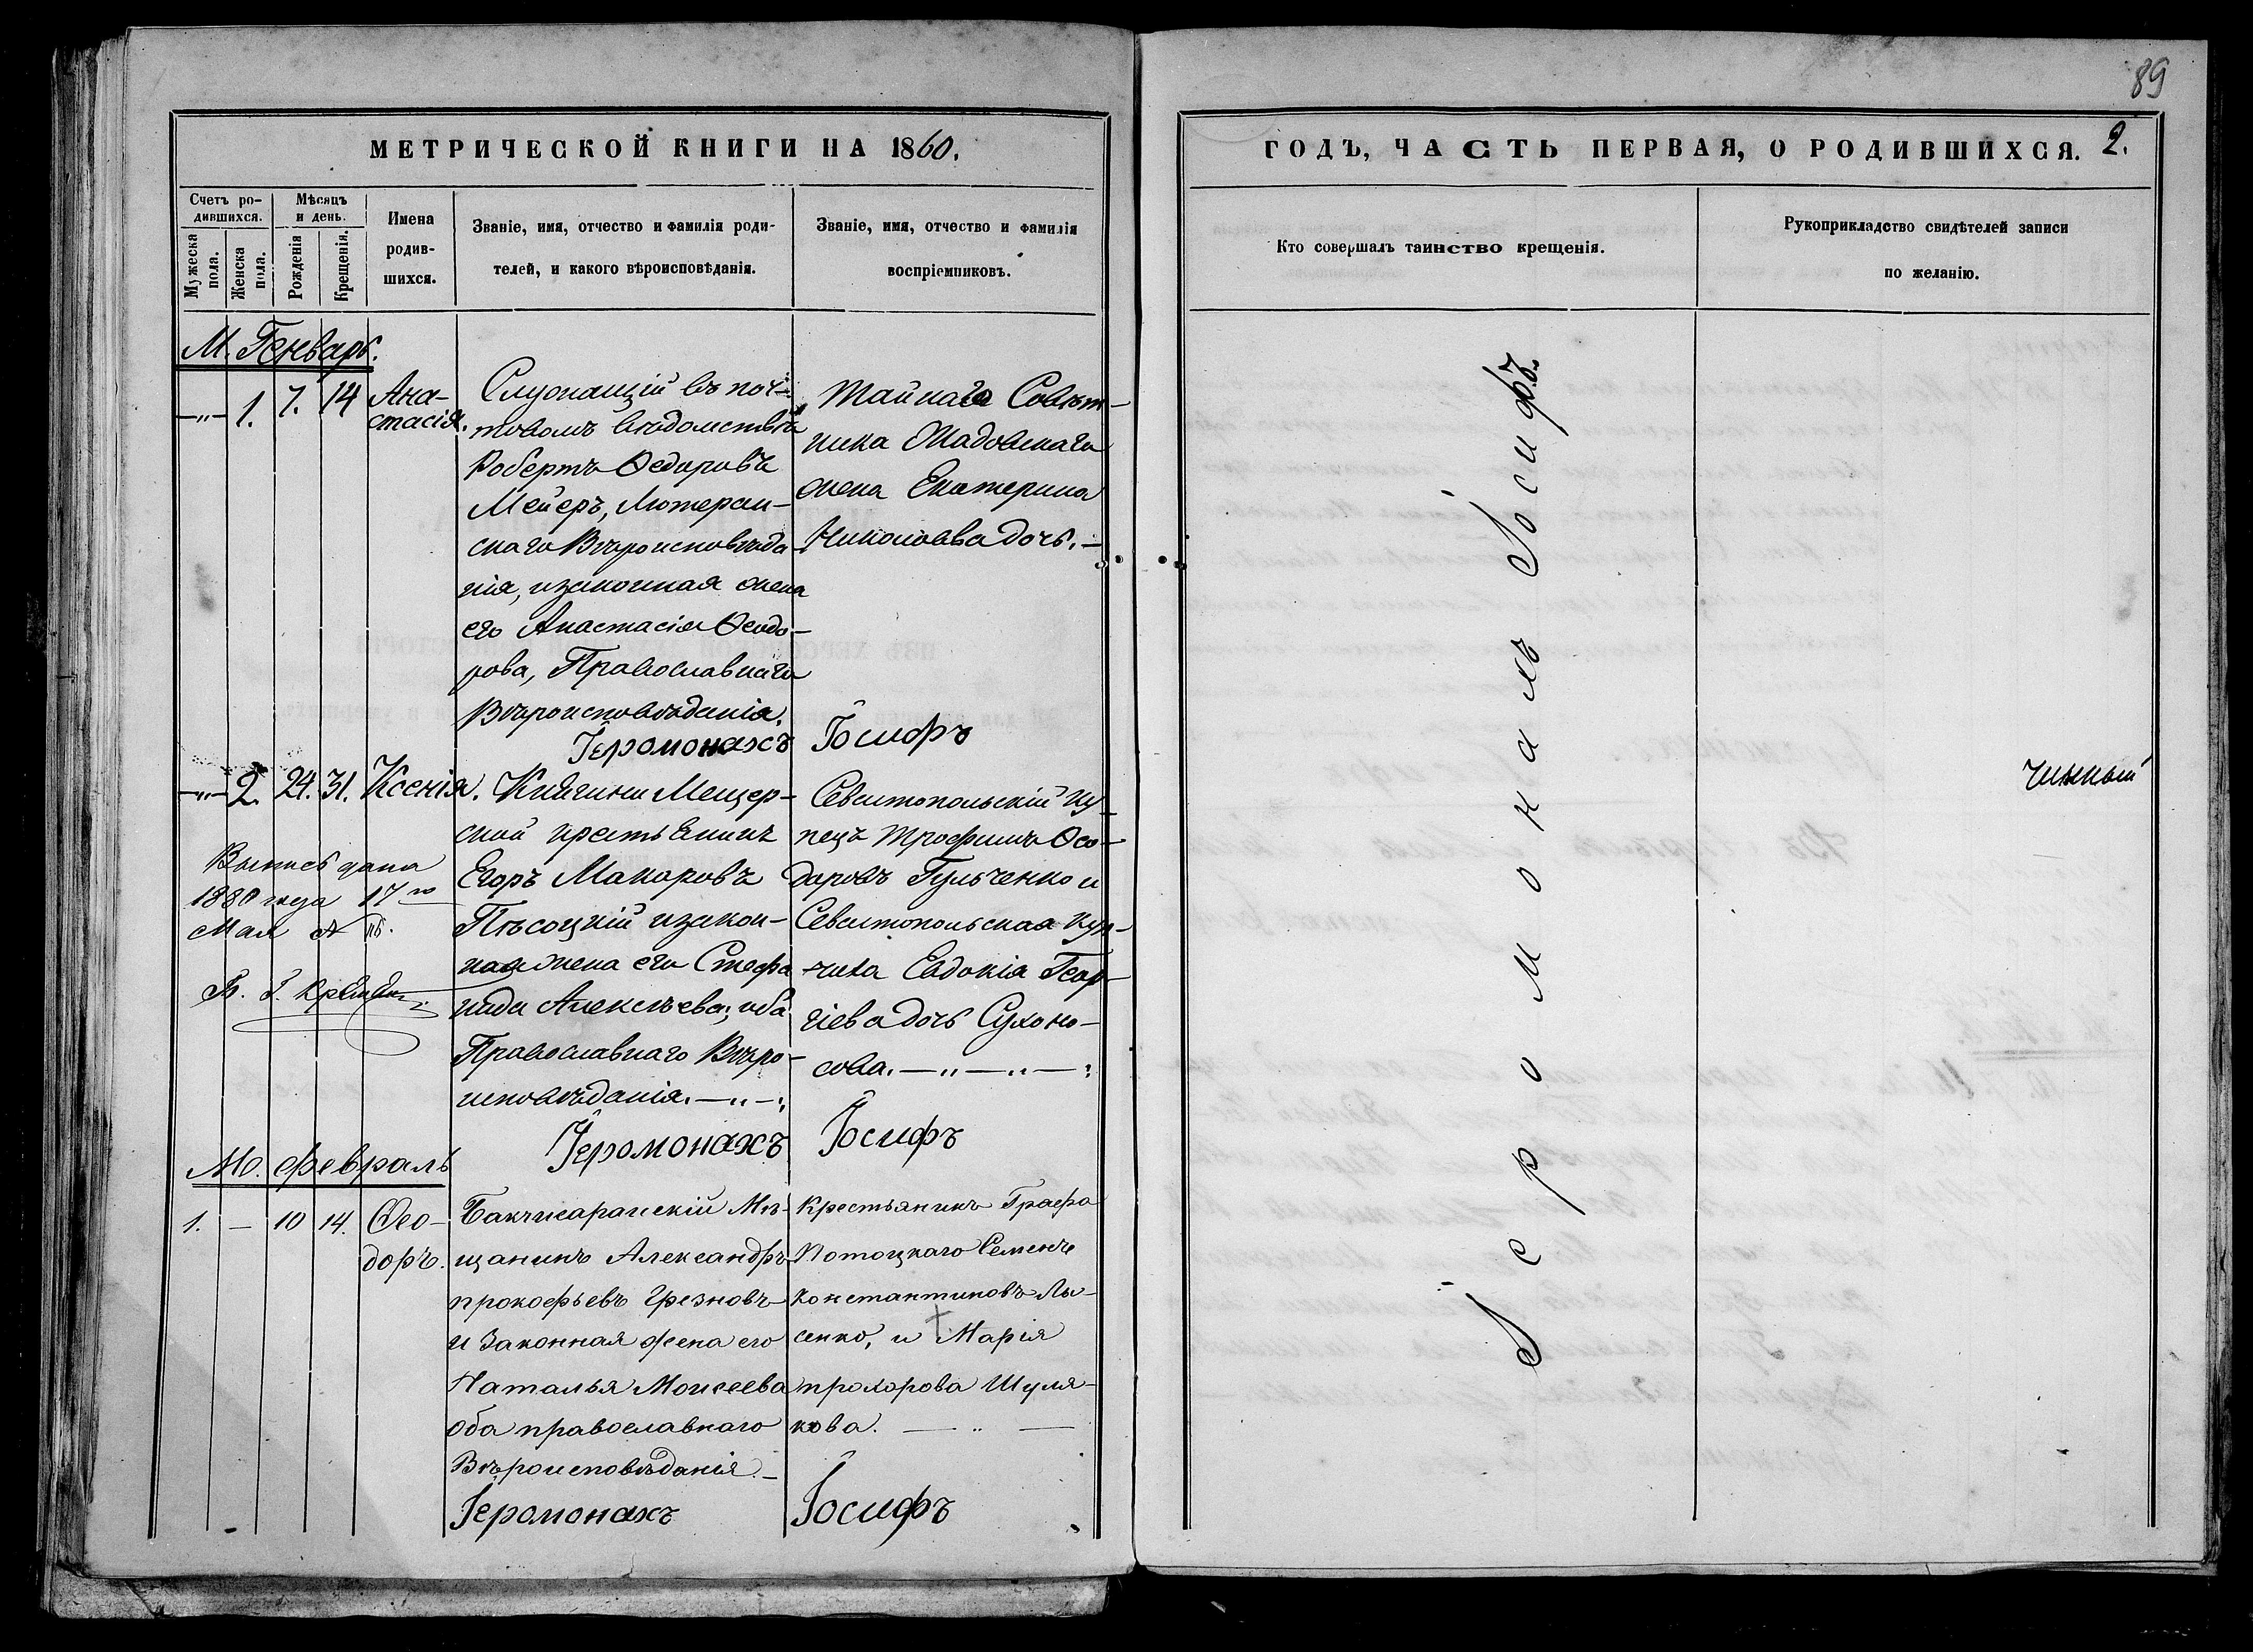 89
МЕТРИЧЕСКОЙ КНИГИ НА 1860.
Счетъ ро-
дившихся.
Мужеска
пола.
Женска
пола.
Мѣсяцъ
и день.
Рожденія
Крещенія.
Имена
родив-
шихся.
Званіе, имя, отчество и фамилія роди-
телей, и какого вѣроисповѣданія.
Званіе, имя, отчество и фамилія
воспріемниковъ.
М. Генварь.
—"— 1. 7. 14
Ана-
стасія.
Служащій въ поч-
товомъ вѣдомствѣ
Робертъ Ѳедоровъ
Мейеръ, Лютеран-
скаго Вѣроисповѣда-
нія, изаконная жена
его Анастасія Ѳеодо-
рова, Православнаго
Вѣроисповѣданія.
Тайнаго Совѣт-
ника Жадовскаго
жена Екатерина
Николаева дочь.—
Іеромонахъ Іосифъ
—"— 2. 24. 31. Ксенія.
Выпись дана
1880 года 17го
Мая №
Княгини Мещер-
ской крестьянинъ
Егоръ Макаровъ
Пѣсоцкій изакон-
ная жена его Стефа
нида Алексѣева; оба
Православнаго Вѣро-
исповѣданія.—"—;
Севастопольскій ку-
пецъ Трофимъ Ѳео-
доровъ Гульченко и
Севастопольская куп-
чиха Евдокія Геор-
гіева дочь Сухоно-
сова.—"—"—;
Іеромонахъ Іосифъ
М. Февраль
1. — 10 14.
Ѳео-
доръ.
Бакчисарайскій Мѣ-
щанинъ Александръ
прокофьевъ Грезновъ
и Законная жена его
Наталья Моисеева
оба православнаго
Вѣроисповѣданія.—
Крестьянинъ Графа
Потоцкаго Семенъ
Константиновъ Лы-
сенко, и Марія
прохорова Шуля-
кова. — " —
Іеромонахъ Іосифъ
ГОДЪ, ЧАСТЬ ПЕРВАЯ, О РОДИВШИХСЯ. 2.
Кто совершалъ таинство крещенія.
Рукоприкладство свидѣтелей записи
по желанію.
Іеромонахъ Іосифъ.
чинный